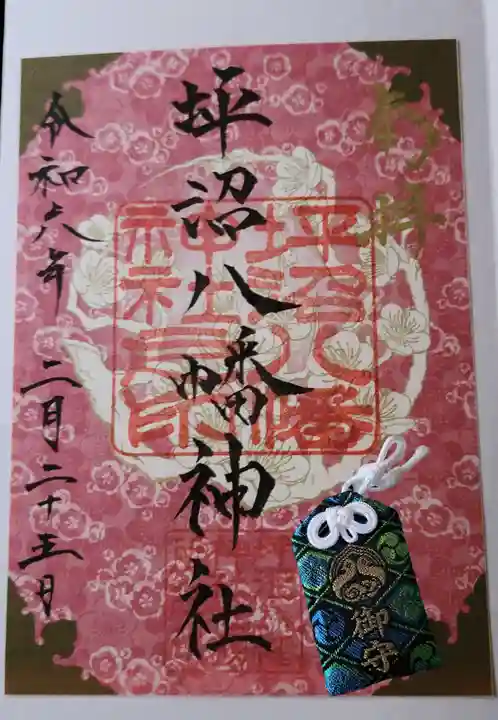 奉拝
坪沼八幡神社
坪沼八幡
神社之印
令和六年 二月二十五日
御守